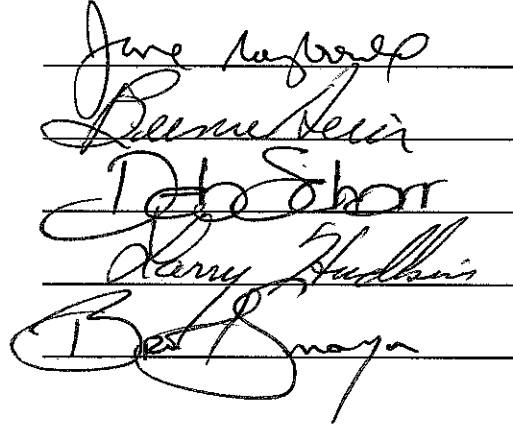 Jane Raybould
Bernie Heier
Deb Schorr
Larry Hudkins
Brent Smoyer